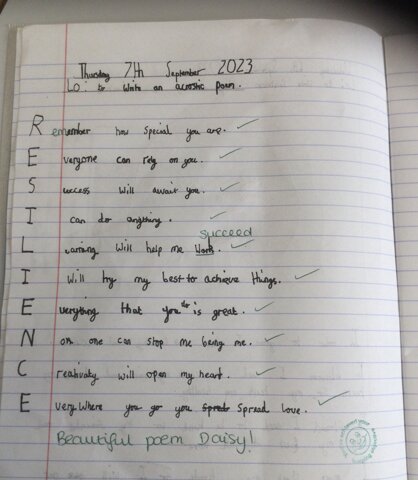 Thursday 7th September 2023
LO: to write an acrostic poem.
Remember how special you are.
Everyone can rely on you.
Success will await you.
I can do anything.
succeed
Learning will help me Work.
I will try my best to achieve things.
Everything that you is great.
No one can stop me being me.
Creativity will open my heart.
Every Where you go you spread Spread love.
Beautiful poem Daisy!